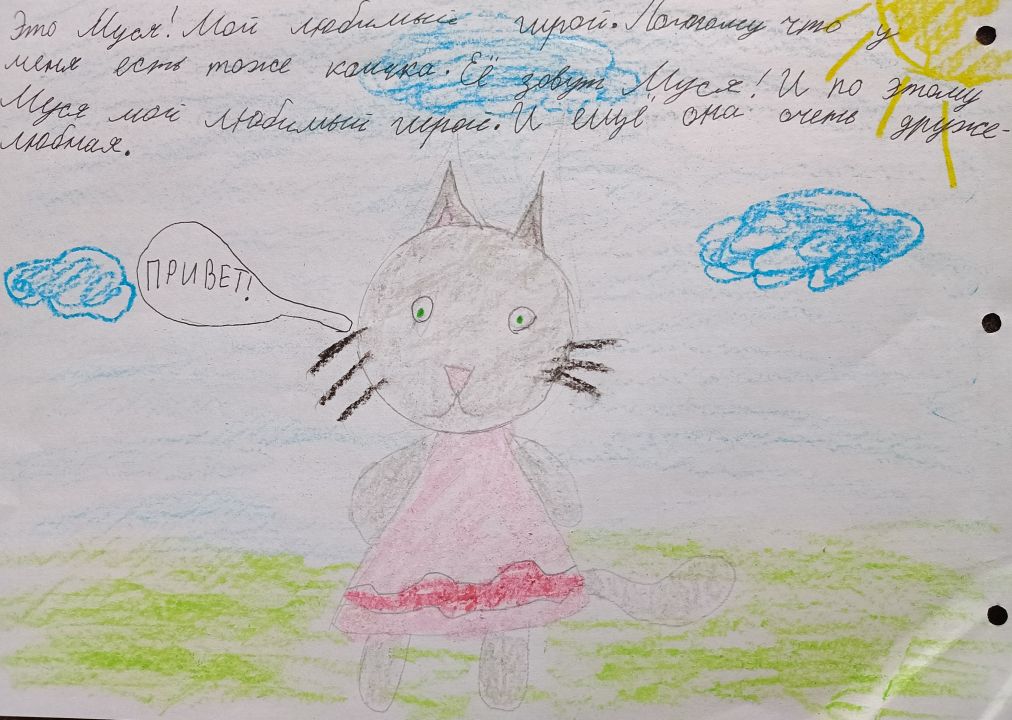 Это Муся! Мой любимый герой. Потому что у
меня есть тоже кошка. Её зовут Муся! И по этому
Муся мой любимый герой. И ещё она очень друже-
любная.
ПРИВЕТ!